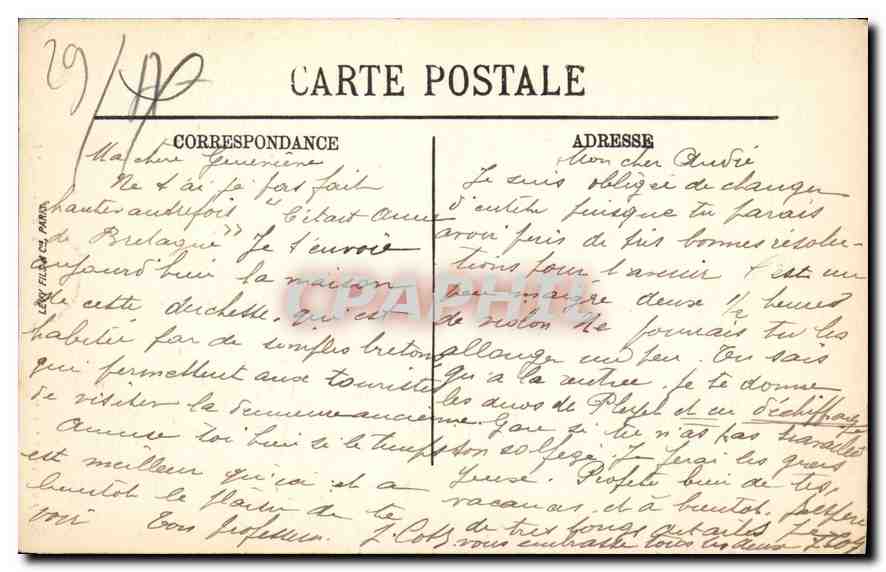 29
CARTE POSTALE
CORRESPONDANCE
Ma chère Geneviève
Ne t'ai je pas fait
chanter autrefois "C'était Anne
de Bretagne" Je t'envoie
aujourd'hui la maison
de cette duchesse, qui est
habitée par de simples bretons
qui permettent aux touristes
de visiter la demeure ancienne.
Amuse toi bien si le temps
est meilleur qu'ici et à
bientôt le plaisir de te
voir Ton professeur
ADRESSE
Mon cher André
Je suis obligée de changer
d'entête puisque tu parais
avoir pris de très bonnes résolu-
tions pour l'avenir c'est un
peu maigre deux 1/2 heures
de violon ne pourrais tu les
allonger un peu. Tu sais
qu'à la rentrée je te donne
les duos de Pleyel et en déchiffrage
Gare si tu n'as pas travaillé
ton solfège. Je ferai les gros
yeux. Profite bien de tes
vacances et à bientôt, j'espère
de très longs détails Je
vous embrasse tous les deux
LÉVY FILS & Cie, PARIS
CPAPHIL